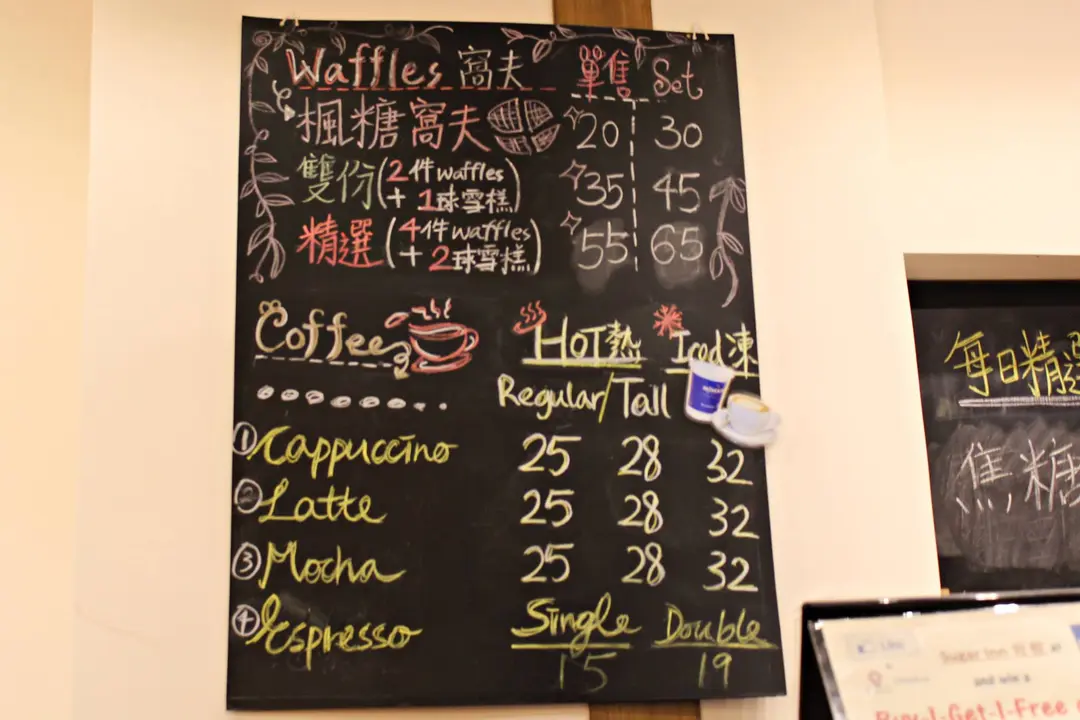 Waffles 窩夫 單售 Set
楓糖窩夫 20 30
雙份(2件waffles 35 45
+ 1球雪糕)
精選(4件waffles 55 65
+ 2球雪糕)
Coffee HOT熱 Iced凍
Regular/Tall
①Cappuccino 25 28 32
②Latte 25 28 32
③Mocha 25 28 32
④Espresso Single Double
15 19
每日精選
焦糖
Like
Sugar Inn at
and win a
Buy-1-Get-1-Free